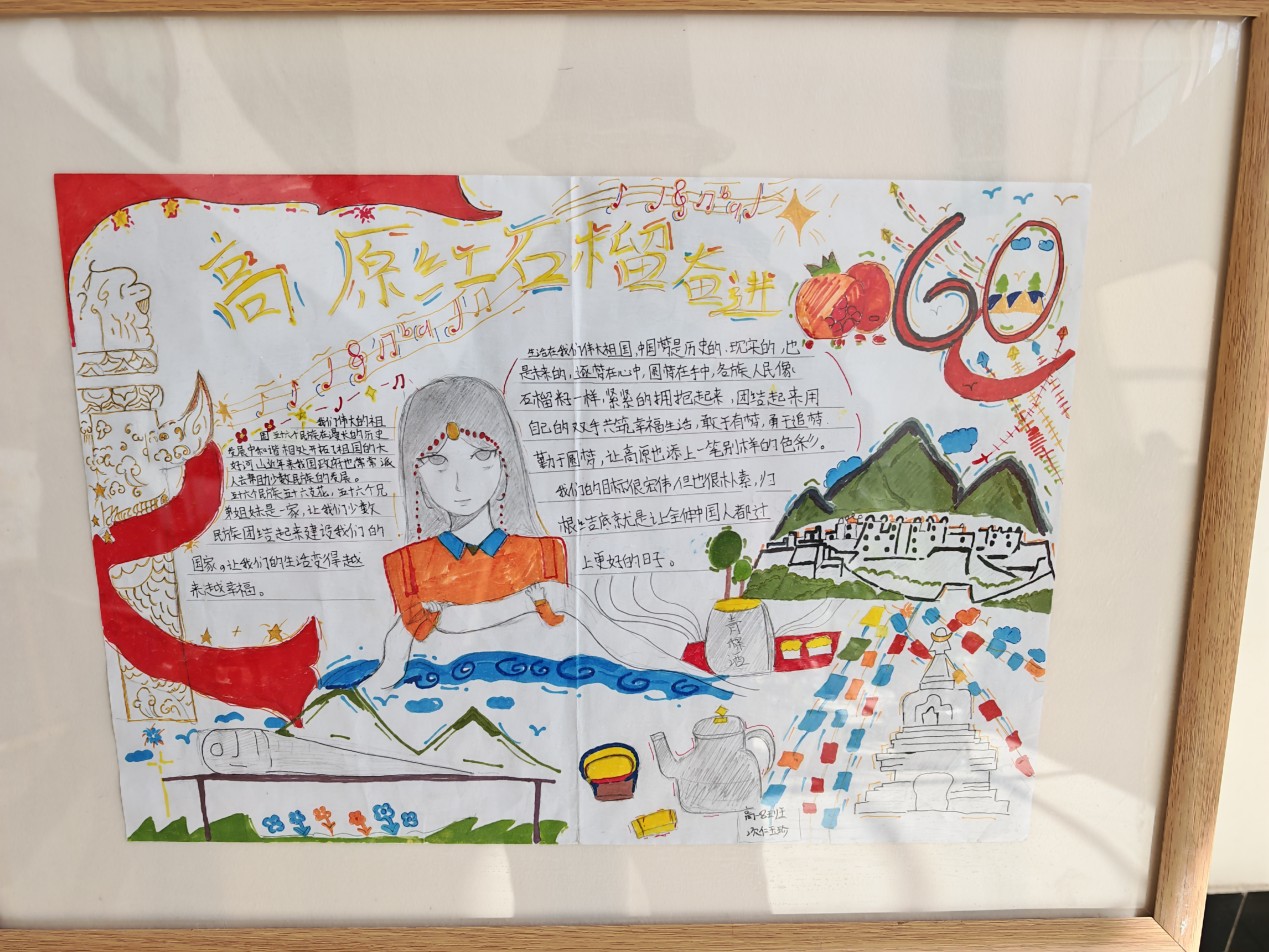 高原红石榴奋进
60
我们伟大的祖
国五十六个民族在漫长的历史
发展中和谐相处开拓了祖国的大
好河山近年来我国政府也常常派
人去帮助少数民族的发展。
五十六个民族五十六支花，五十六个兄
弟姐妹是一家，让我们少数
民族团结起来建设我们的
国家。让我们的生活变得越
来越幸福。
生活在我们伟大祖国，中国梦是历史的、现实的，也
是未来的，逐梦在心中，圆梦在手中，各族人民像
石榴籽一样，紧紧的拥抱起来，团结起来用
自己的双手共筑幸福生活，敢于有梦，勇于追梦，
勤于圆梦，让高原也添上一笔别样的色彩。
我们的目标很宏伟，但也很朴素，归
根结底就是让全体中国人都过
上更好的日子。
青稞酒